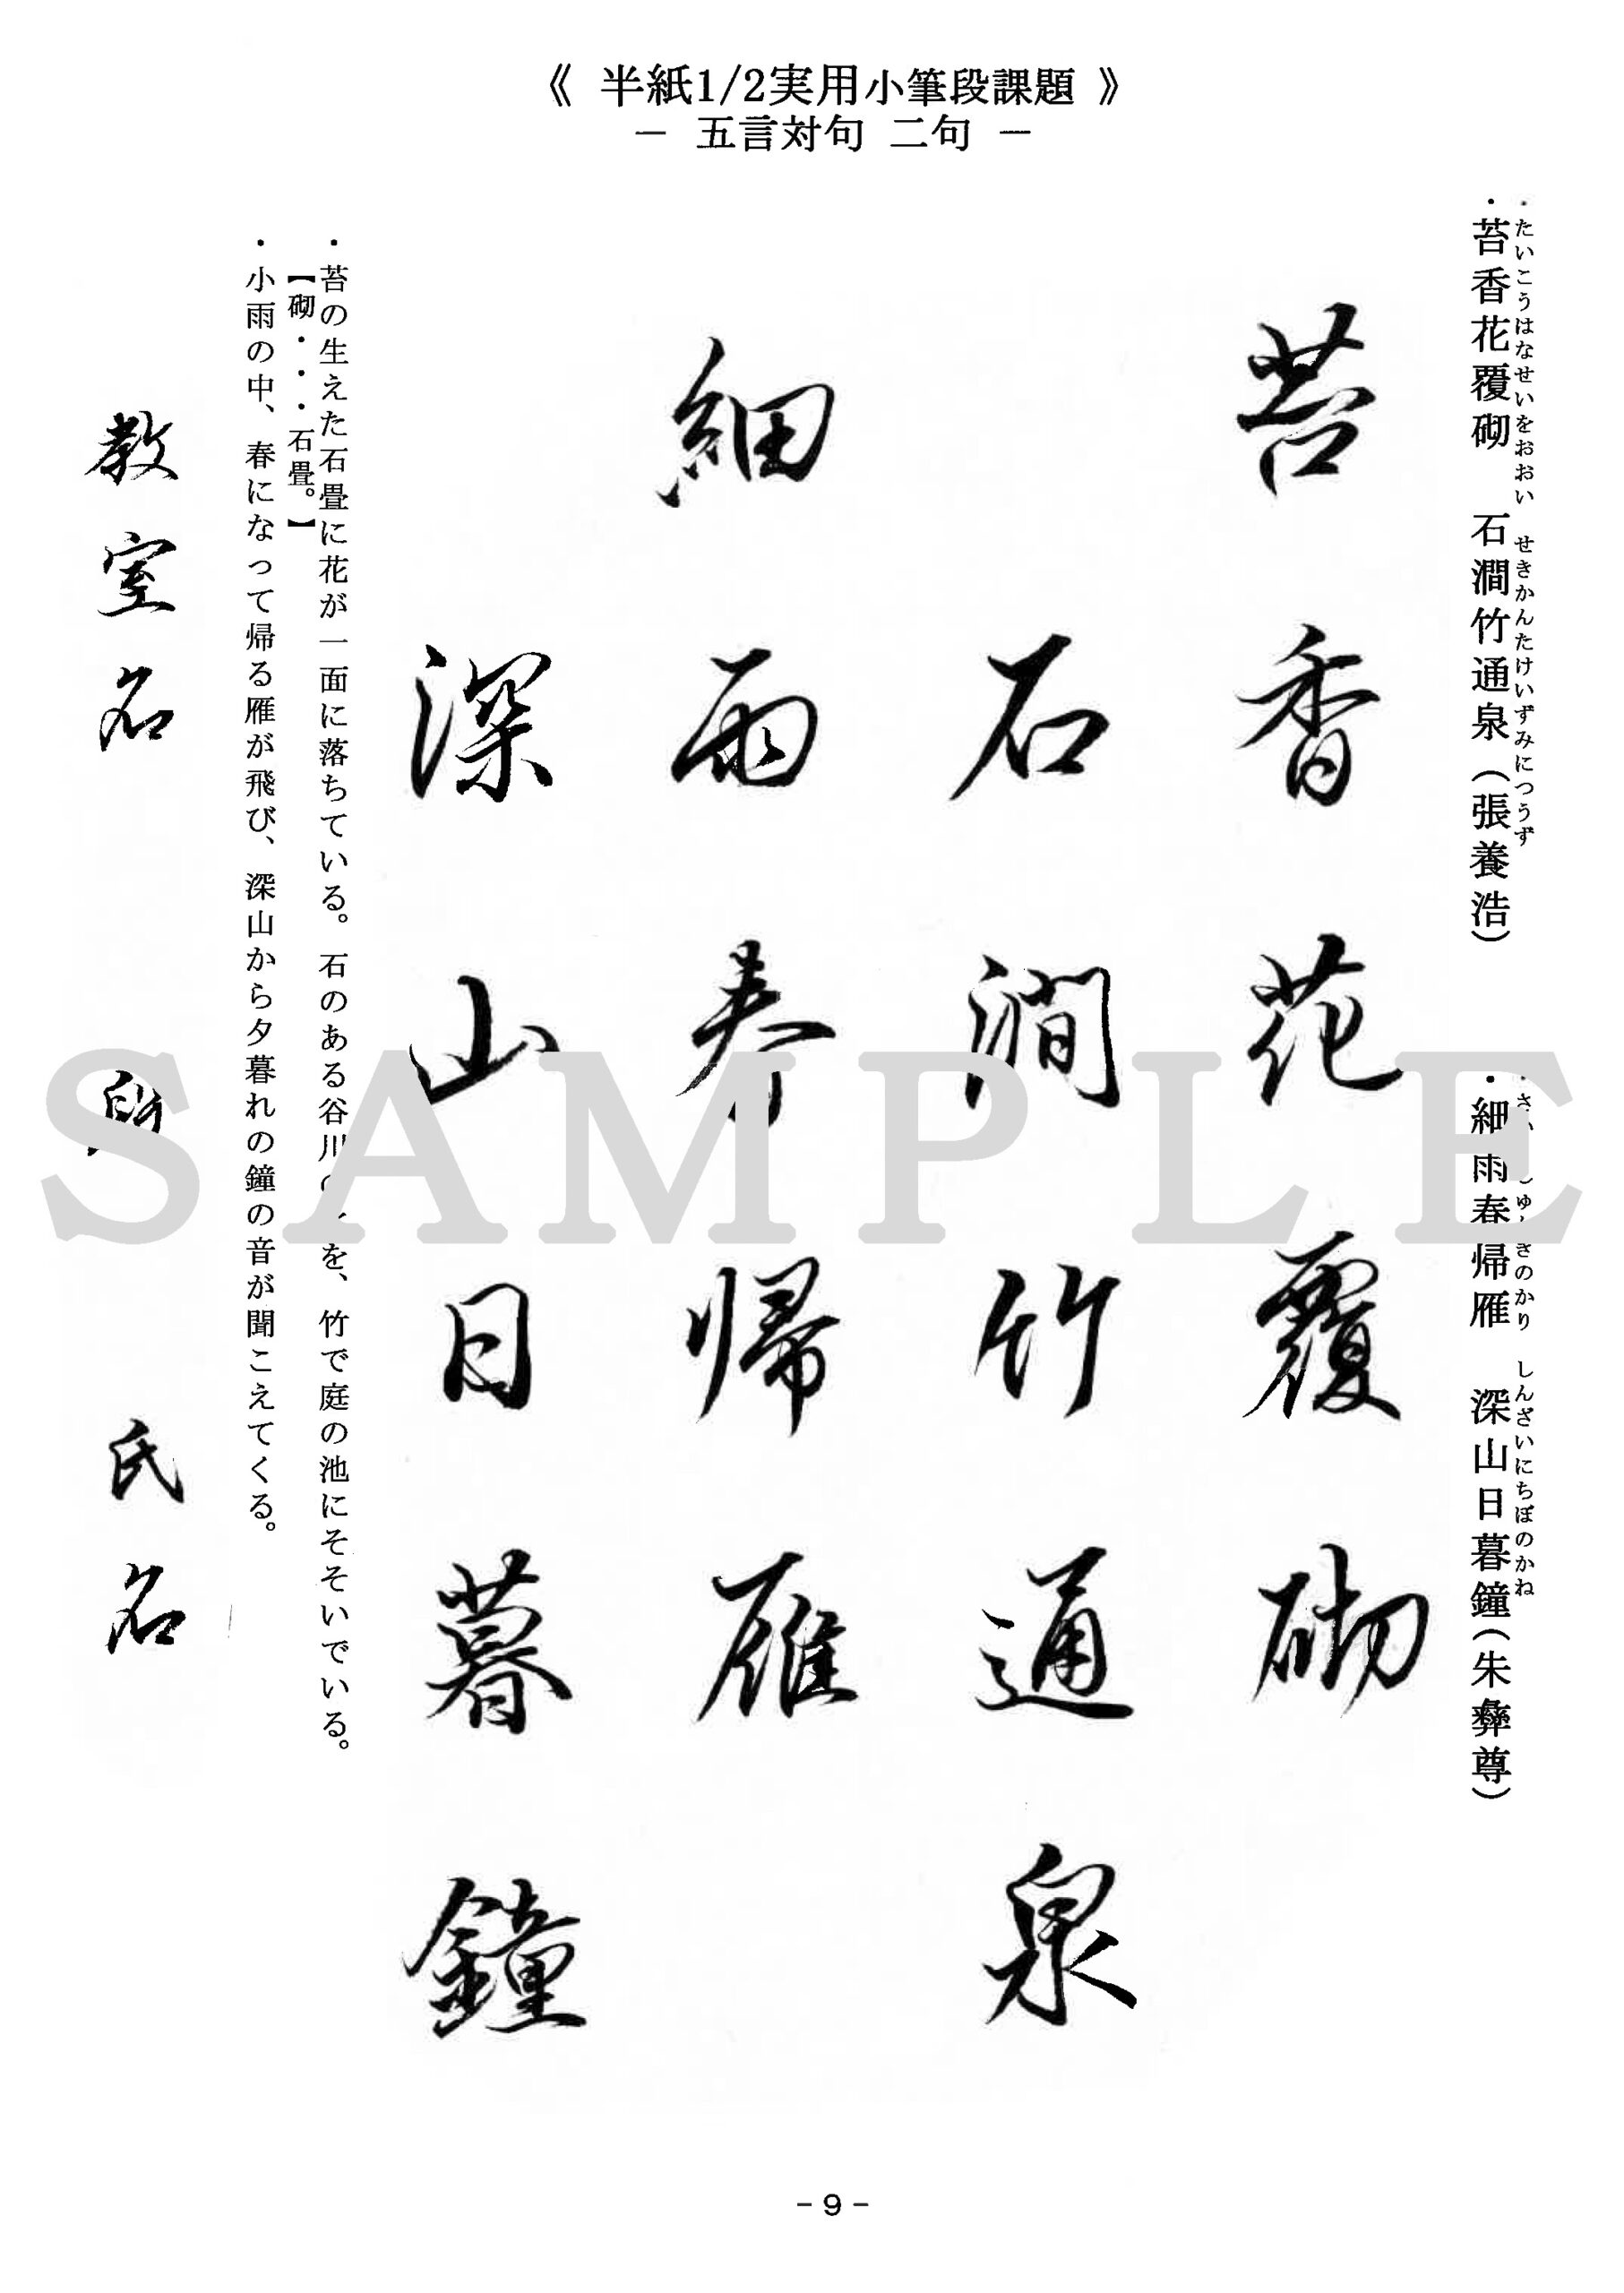 《 半紙1/2実用小筆段課題 》
― 五言対句 二句 ―
・たいこうはなせいをおおい せきかんたけいずみにつうず
・苔香花覆砌 石澗竹通泉（張養浩）
きのかり しんざいにちぼのかね
・細雨春帰雁 深山日暮鐘（朱彝尊）
苔香花覆砌
石澗竹通泉
細雨春帰雁
深山日暮鐘
・苔の生えた石畳に花が一面に落ちている。石のある谷川の を、竹で庭の池にそそいでいる。
【砌・・・石畳。】
・小雨の中、春になって帰る雁が飛び、深山から夕暮れの鐘の音が聞こえてくる。
教室名 段 氏名
SAMPLE
- 9 -